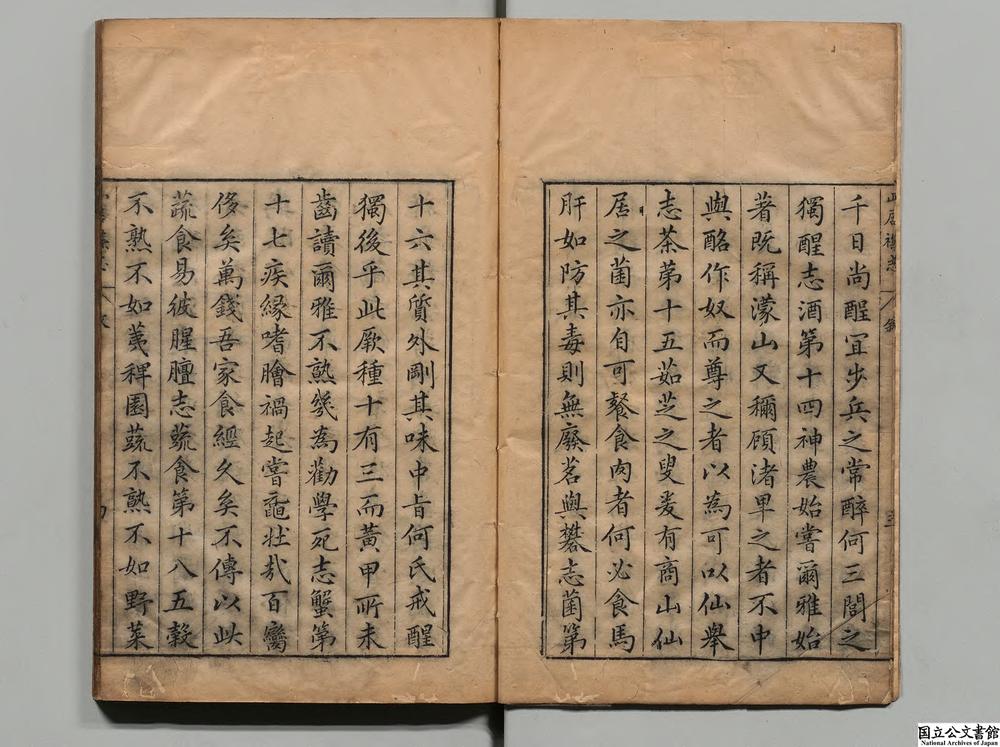 千日尚醒宜步兵之常醉何三閭之
獨醒志酒第十四神農始嘗爾雅始
著既稱濛山又稱顧渚卑之者不中
與酪作奴而尊之者以為可以仙舉
志茶第十五茹芝之叟爰有商山仙
居之菌亦自可餐食肉者何必食馬
肝如防其毒則無廢茗與礬志菌第
十六其質外剛其味中旨何氏戒醒
獨後乎此厥種十有三而黃甲所未
齒讀爾雅不熟幾為勸學死志蟹第
十七疾緣嗜膾禍起嘗黿壯哉百臠
侈矣萬錢吾家食經久矣不傳以此
蔬食易彼腥膻志蔬食第十八五穀
不熟不如荑稗園蔬不熟不如野菜
国立公文書館
National Archives of Japan